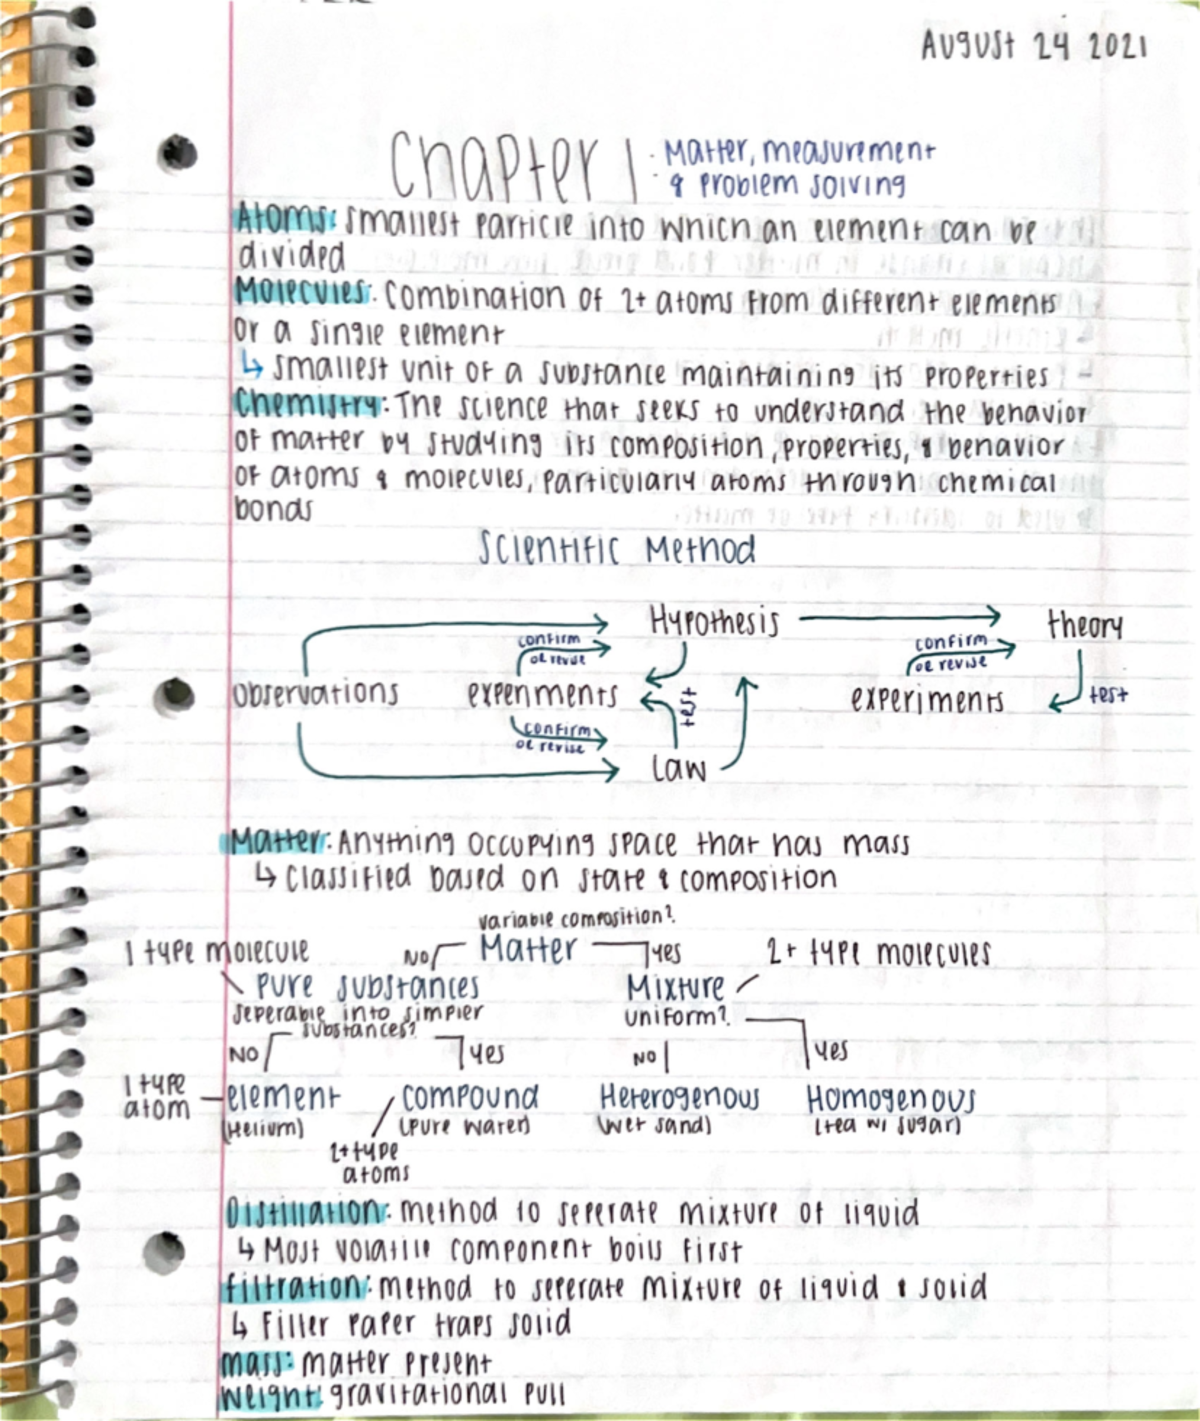 AUGUST 24 2021
Chapter 1: Matter, measurement
& problem solving
Atoms: smallest particle into which an element can be
divided
Molecules: combination of 2+ atoms from different elements
or a single element
↳ smallest unit of a substance maintaining its properties
Chemistry: The science that seeks to understand the behavior
of matter by studying its composition, properties, & behavior
of atoms & molecules, particularly atoms through chemical
bonds
Scientific Method
Hypothesis
theory
confirm
or revise
confirm
or revise
observations
experiments
test
experiments
test
confirm
or revise
Law
Matter: Anything occupying space that has mass
↳ Classified based on state & composition
variable composition?
1 type molecule
NO
Matter
yes
2+ type molecules
Pure substances
Mixture
seperable into simpler
substances?
uniform?
NO
yes
NO
yes
1 type
atom
element
compound
Heterogenous
Homogenous
(Helium)
(pure water)
(wet sand)
(tea w/ sugar)
2+ type
atoms
Distillation: method to seperate mixture of liquid
↳ Most volatile component boils first
filtration: method to seperate mixture of liquid & solid
↳ Filter paper traps solid
mass: matter present
Weight: gravitational pull